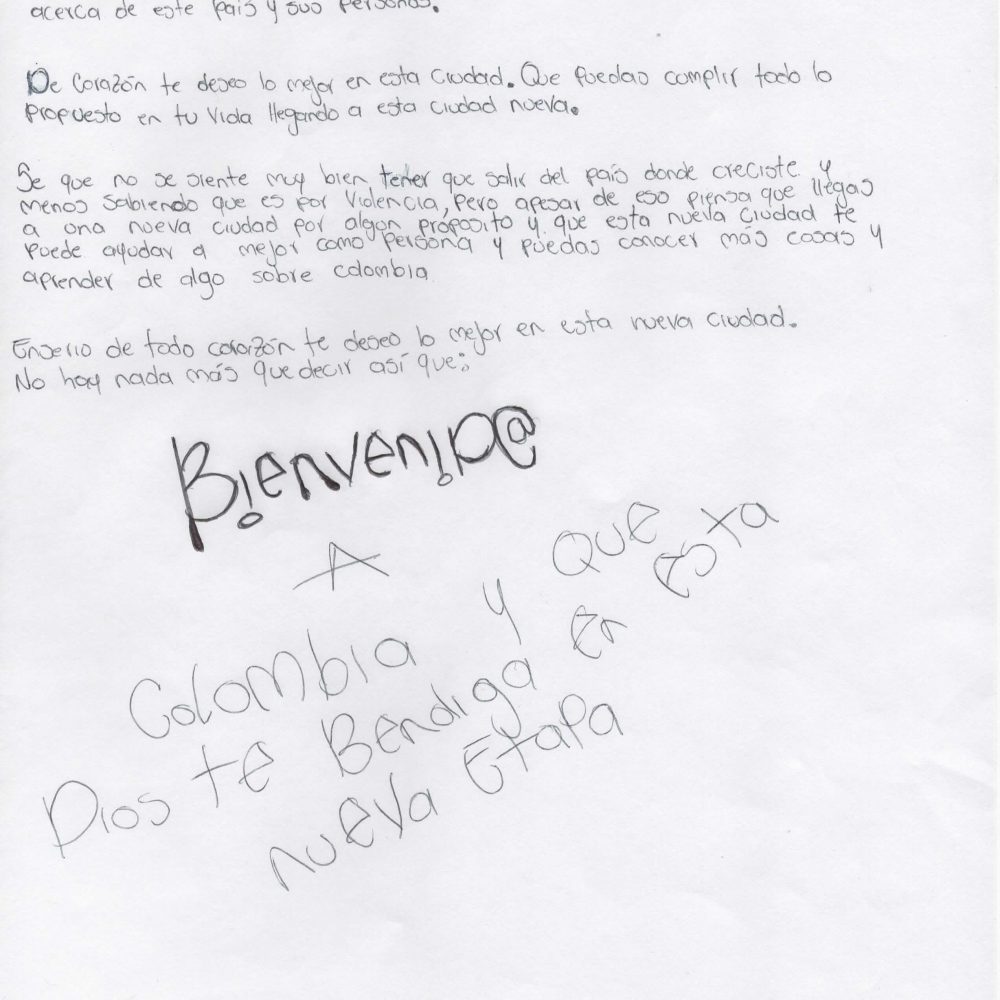 acerca de este país y sus personas.
De Corazón te deseo lo mejor en esta Ciudad. Que puedas cumplir todo lo
propuesto en tu Vida llegando a esta ciudad nueva.
Se que no se siente muy bien tener que salir del país donde creciste y
menos sabiendo que es por Violencia, pero apesar de eso piensa que llegas
a una nueva ciudad por algun proposito y que esta nueva ciudad te
puede ayudar a mejor como persona y puedas conocer más cosas y
aprender de algo sobre colombia
Enserio de todo corazón te deseo lo mejor en esta nueva ciudad.
No hay nada más que decir así que:
Bienvenid@
A
Colombia y que
Dios te Bendiga en esta
nueva Etapa